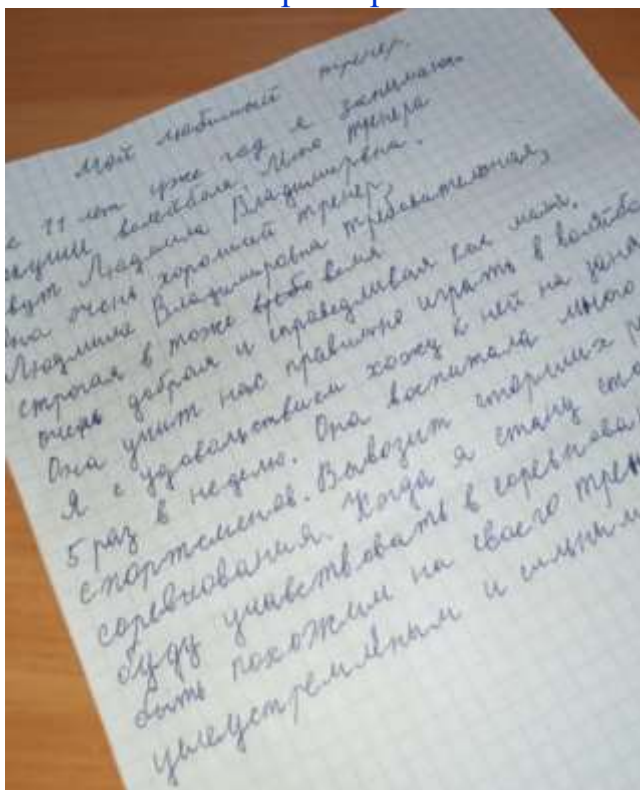 Мой любимый тренер.
11 лет уже год я занимаюсь
волейбола. Моего тренера
зовут Людмила Владимировна.
Она очень хороший тренер,
Людмила Владимировна требовательная,
строгая в тоже время
очень добрая и справедливая как мама.
Она учит нас правильно играть в
Я с удовольствием хожу к ней на
5 раз в неделю. Она воспитала много
спортсменов. Вывозит старших
соревнования. Когда я стану
буду учавствовать в
быть похожим на своего
целеустремлёным и сильным